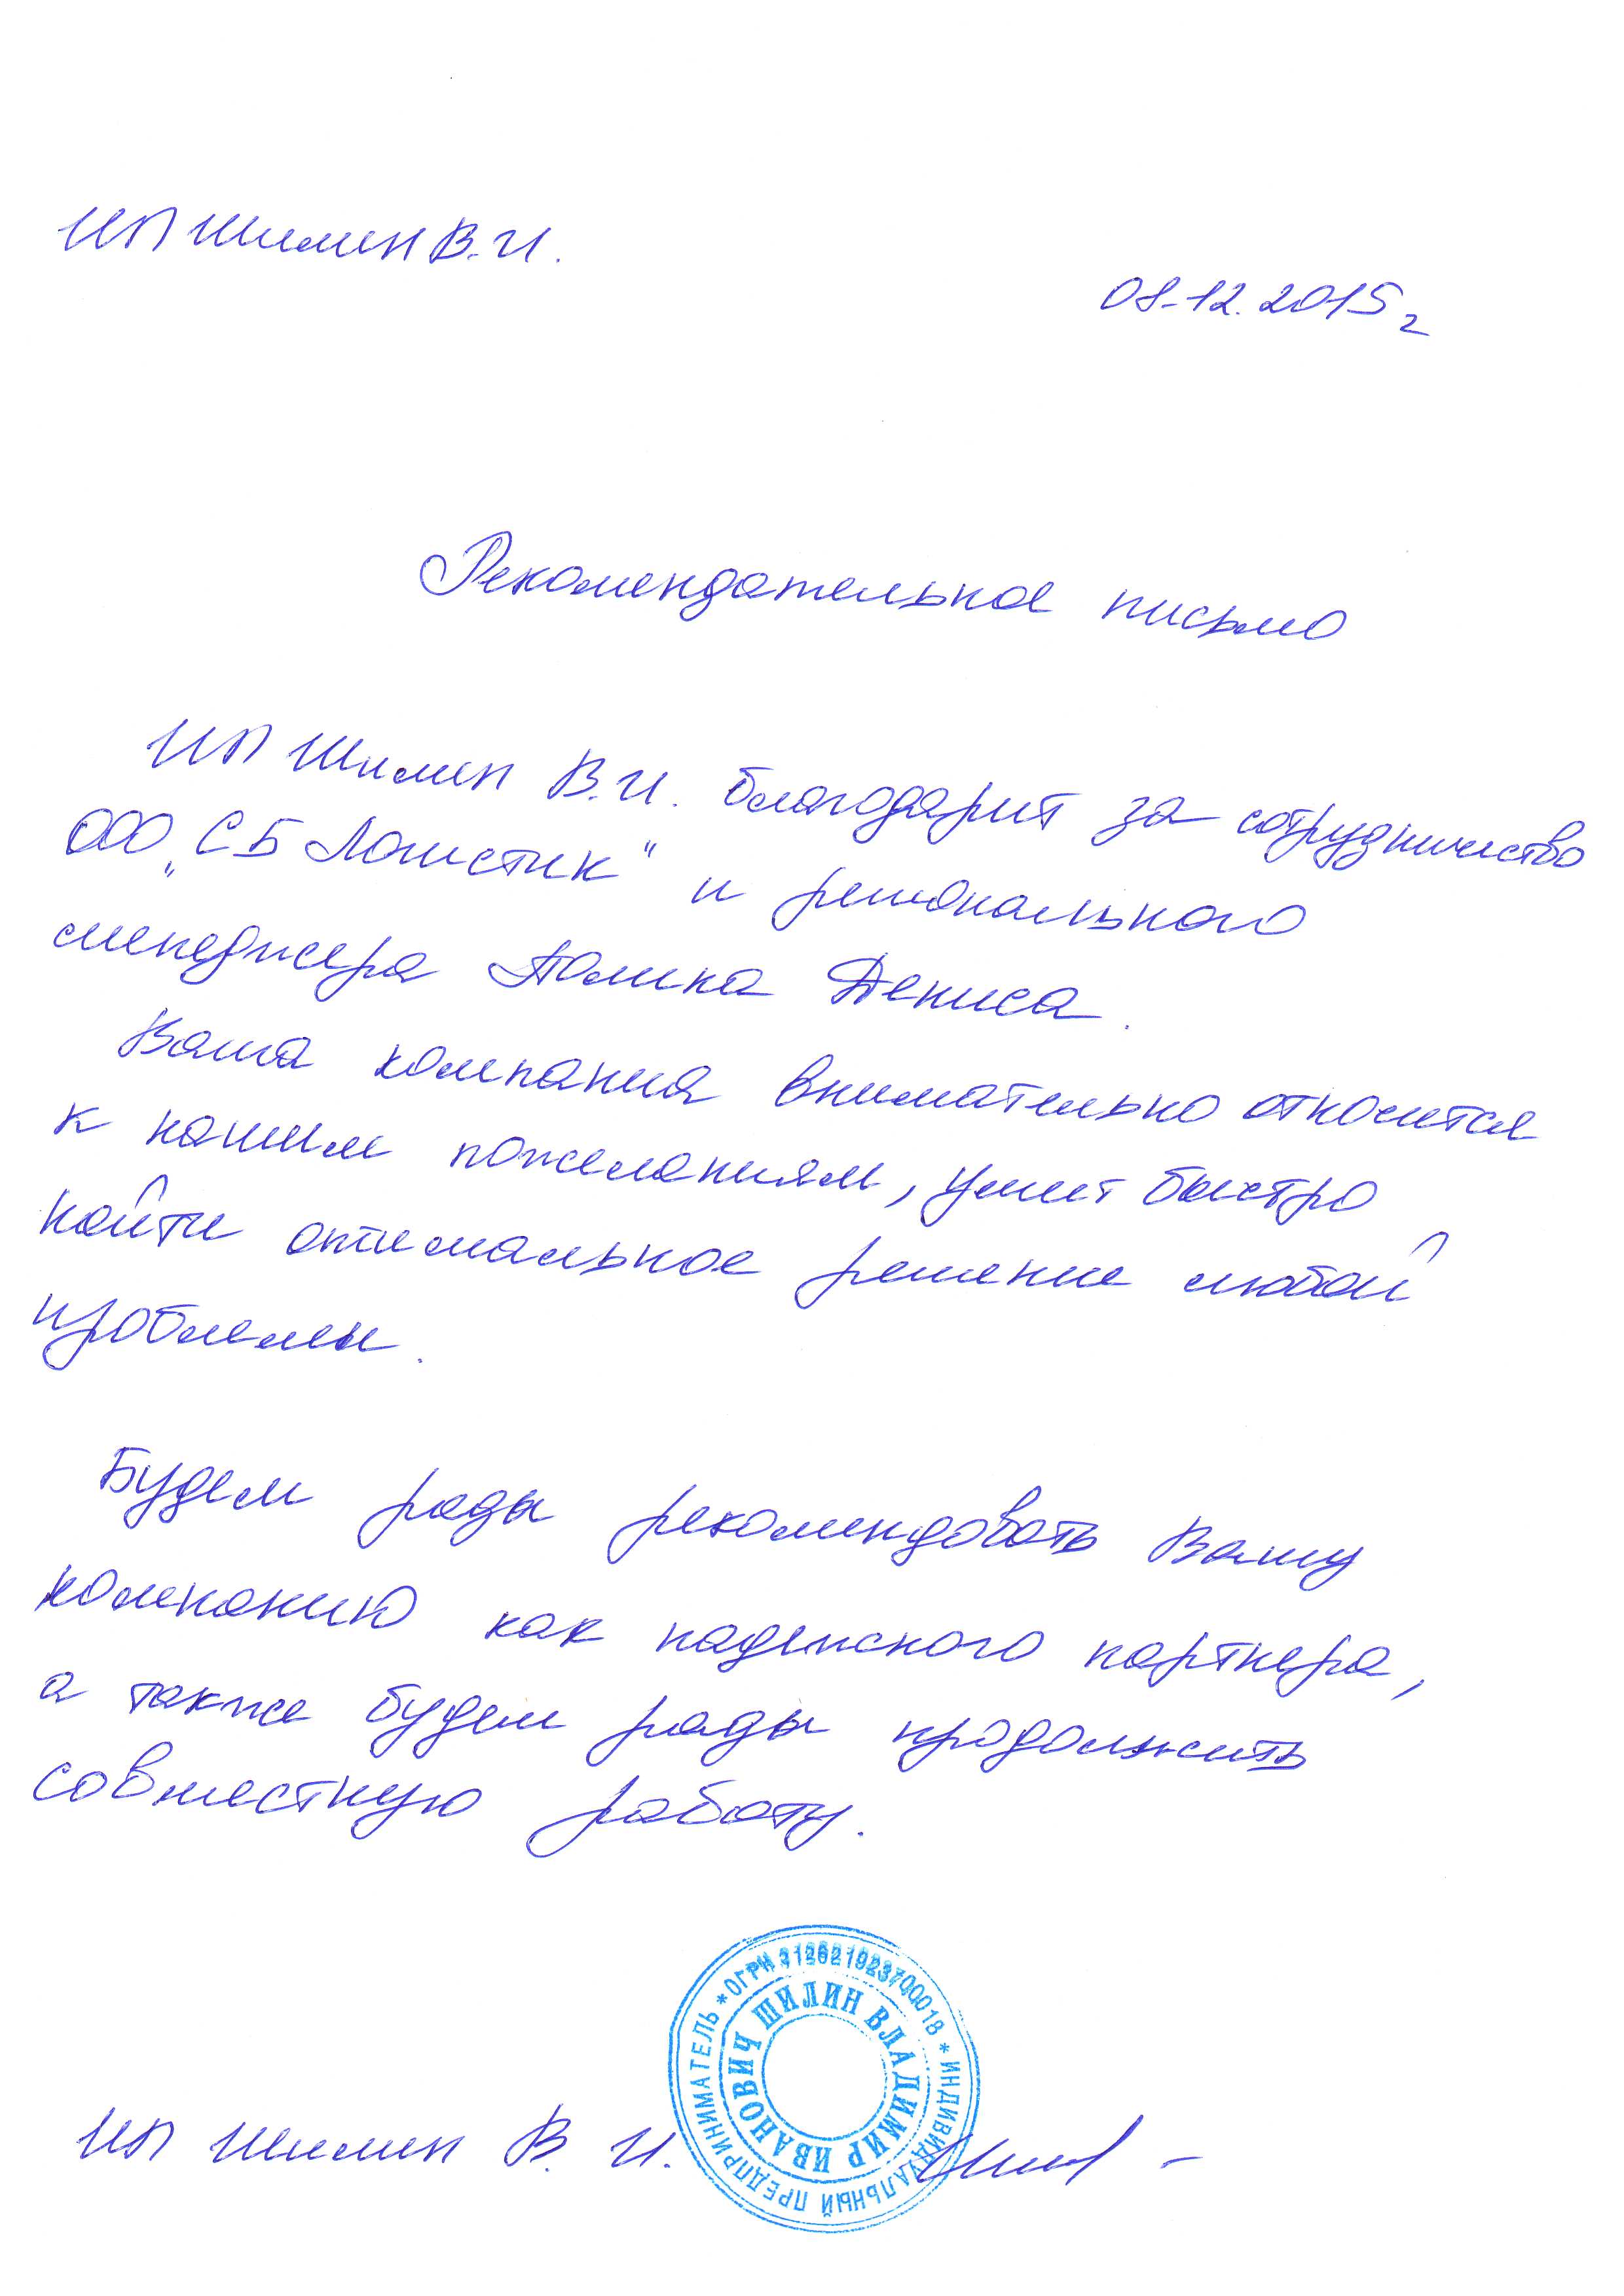 ИП Шилин В.И.
08.12.2015г
Рекомендательное письмо
ИП Шилин В.И. благодарит за сотрудничество
ООО „СБ Логистик" и регионального
менеджера Дениса.
Ваша компания внимательно относится
к нашим пожеланиям, умеет быстро
найти оптимальное решение любой
проблемы.
Будем рады рекомендовать Вашу
компанию как надежного партнера,
а также будем рады продолжить
совместную работу.
ИП Шилин В. И.
* ИНДИВИДУАЛЬНЫЙ ПРЕДПРИНИМАТЕЛЬ * ОГРН 312621923700018
ШИЛИН ВЛАДИМИР ИВАНОВИЧ